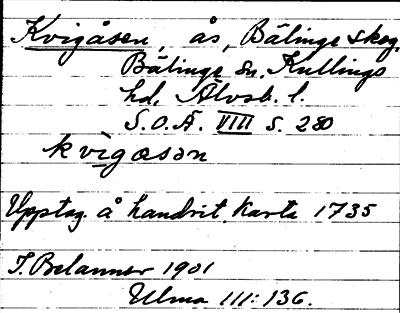 Kvigåsen, ås, Bälinge skog,
Bälinge sn, Kullings
hd, Älvsb. l.
S.O.Ä. VIII s. 280
kvigåsən
Upptag. å handrit. karta 1735
J. Belanner 1901
Ulma 111:136.